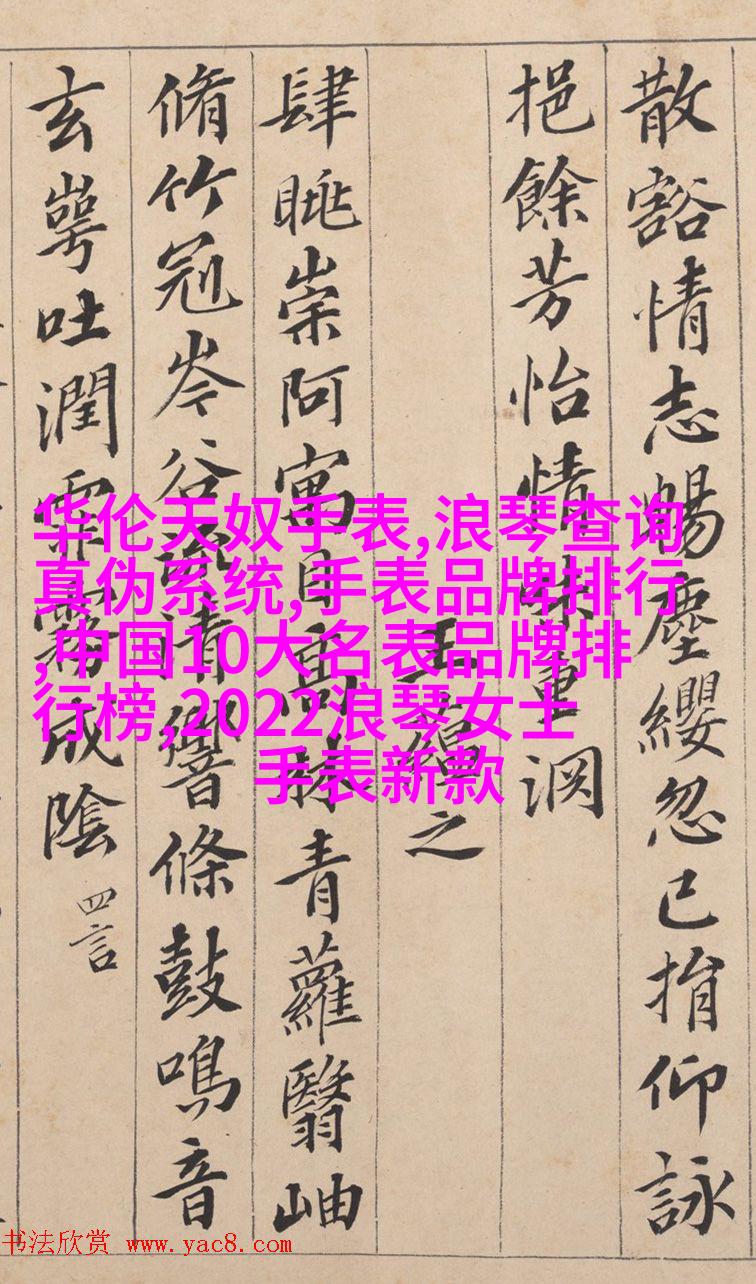 散豁情志暢塵纓忽已捐仰詠
挹餘芳怡情味重渊
王蘊之
肆眺崇阿寓目高林青蘿翳岫
脩竹冠岑谷流清響條鼓鳴音
玄崿吐潤霏霧成陰 四言
华伦天奴手表,浪琴查询
真伪系统,手表品牌排行
,中国10大名表品牌排
行榜,2022浪琴女士
手表新款
书法欣赏 www.yac8.com